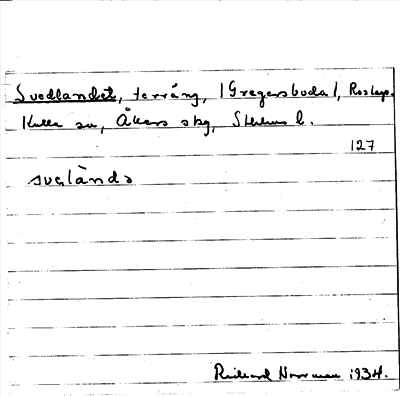 Svedlandet, terräng, (Gregersboda), Roslags.
Kulla sn, Åkers skg, Sthlms l.
127
sveländə
Rickard Norrman 1934.